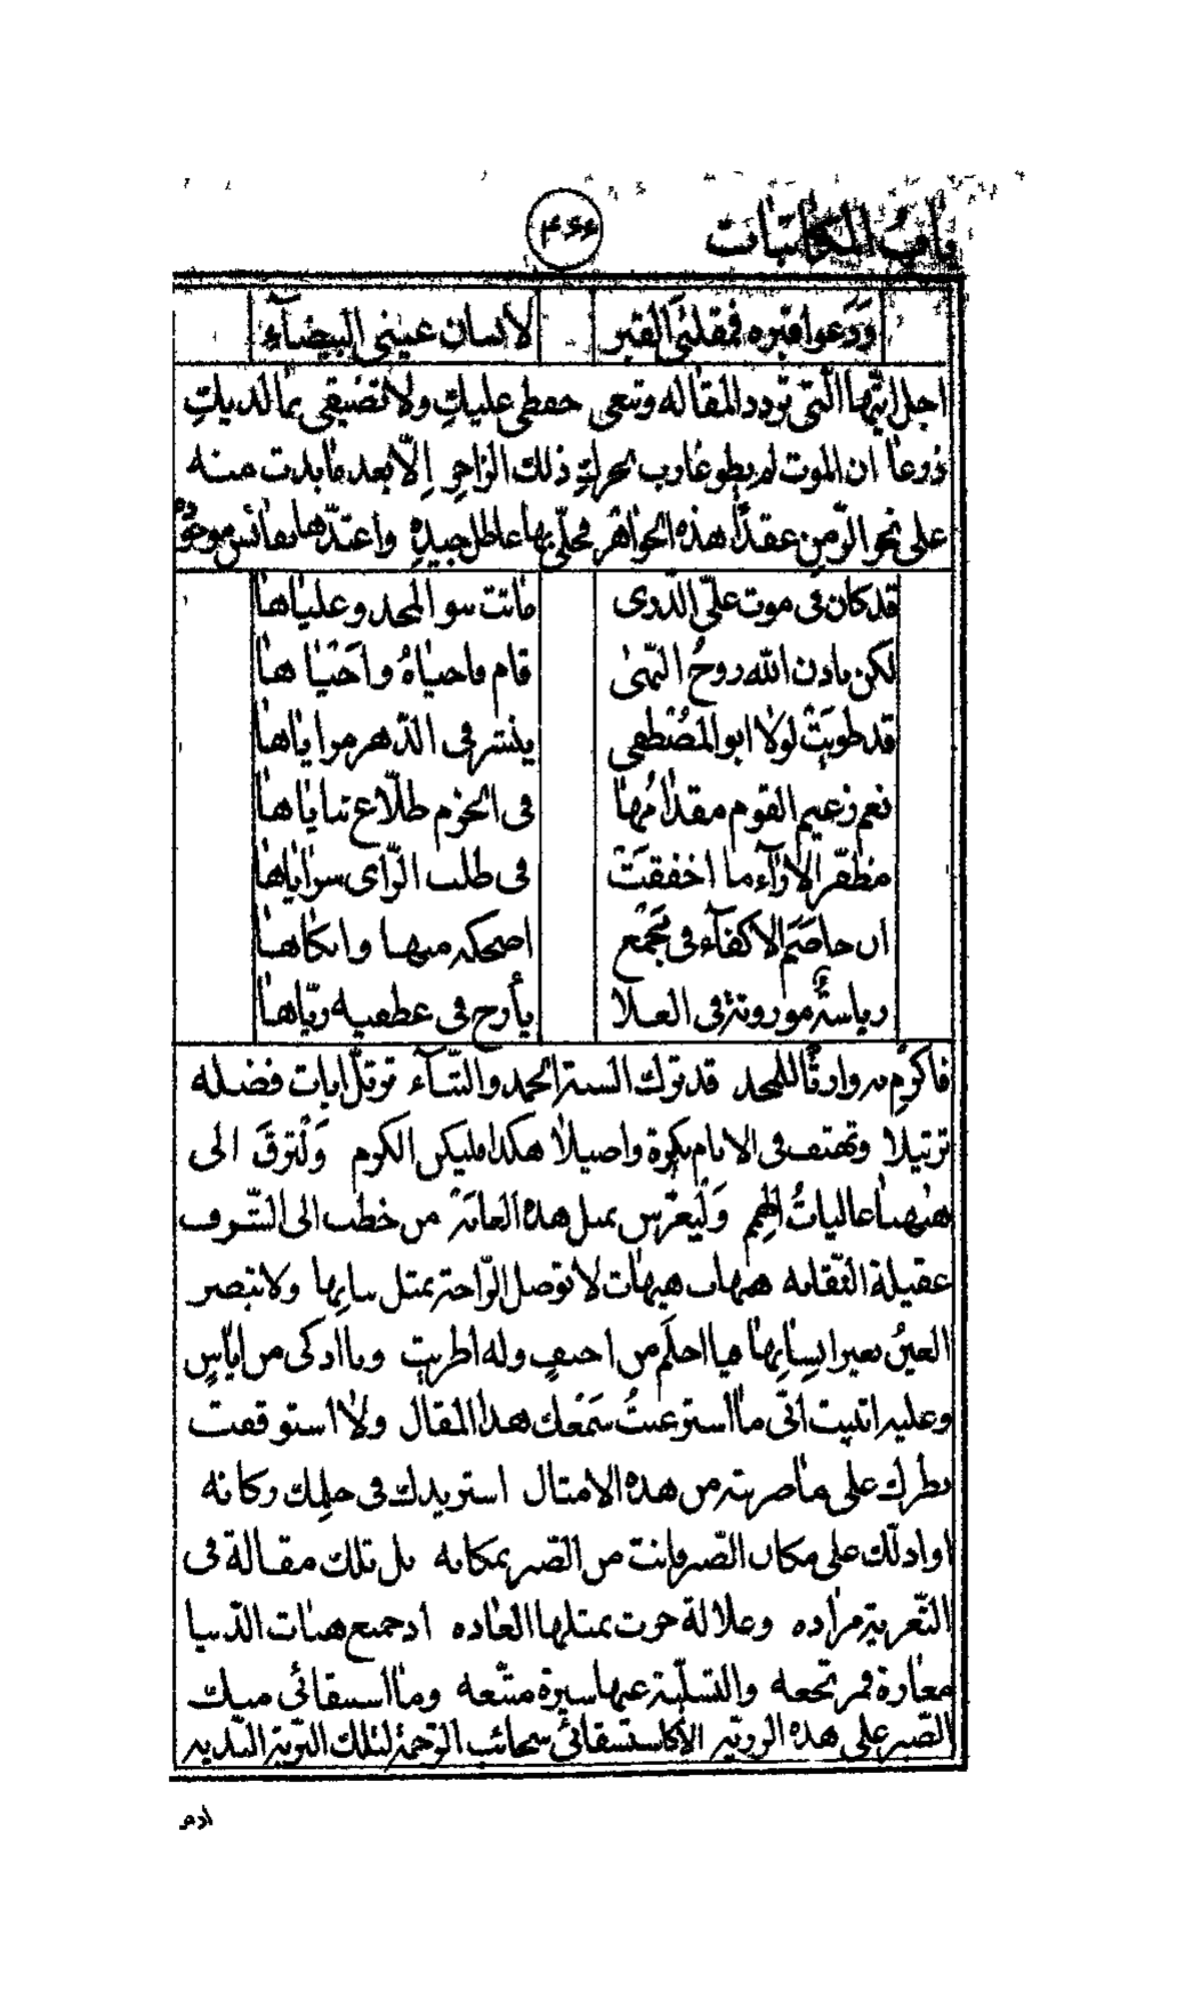 باب المكاتبات
۴۶۶
ودعوا قبره فمقلتي القبر لانسان عيني البيضآء
اجل ايتها التي تردد المقاله وتنعى حفظي عليكِ ولا تضيقي بما لديكِ
ذرعا ان الموت لم يطو غارب بحركِ ذلك الزاخر إلّا بعد ما بدت منه
على نحر الزمن عقداً هذه الجواهر فحلّى بها عاطل جيده واعتدّها نفائس موجوده
قد كان فى موت علىّ الذرى ماتت بنو المجد وعلياها
لكن باذن الله روحُ النهىٰ قام فاحياهُ واحياها
قد طويتْ لولا ابو المصطفى ينشر فى الدّهر مزاياها
نعم زعيم القوم مقدامُها فى الحزم طلّاع ثناياها
مظفّر الآراء ما اخفقتْ فى طلب الرّاى سراياها
ان خاصَمَ الاكفآء فى مجمع اضحكه منها وابكاها
رياسةٌ موروثةٌ فى العلا يأرج فى عطفيه ريّاها
فاكرم به وارثاً للمجد قد ترك السنة الحمد والثنآء ترتّل ايات فضله
ترتيلا وتهتف فى الانام بكرة واصيلا هكذا فليكن الكرم وَلْترقَ الى
هٰهنا عالياتُ الهمم وَلْيعرّس بمثل هذه الغاية من خطب الى الشّرف
عقيلة النقابه هيهات هيهات لا توصل الرّاحة بمثل بنانها ولا تبصر
العينُ بغير انسانها فيا احلَم من احنفٍ وله اطريت ويا اذكى من اياسٍ
وعليه اثنيت انّى ما استرعيتُ سَمْعك هذا المقال ولا استوقفت
نظرك على ما ضربته من هذه الامثال استزيدك فى حلمك ركانه
او ادلّك على مكان الصّبر وانت من الصّبر بمكانه بل تلك مقالة فى
التّعزية مراده وعلالة جرت بمثلها العاده اذ جميع هبات الدّنيا
معارة فمرتجعه والتسلّية عنها سيرة متّبعه وما استبقائى منك
الصّبر على هذه الرزيّه الّا كاستسقائى سحائب الرّحمة لتلك التربة النّديه